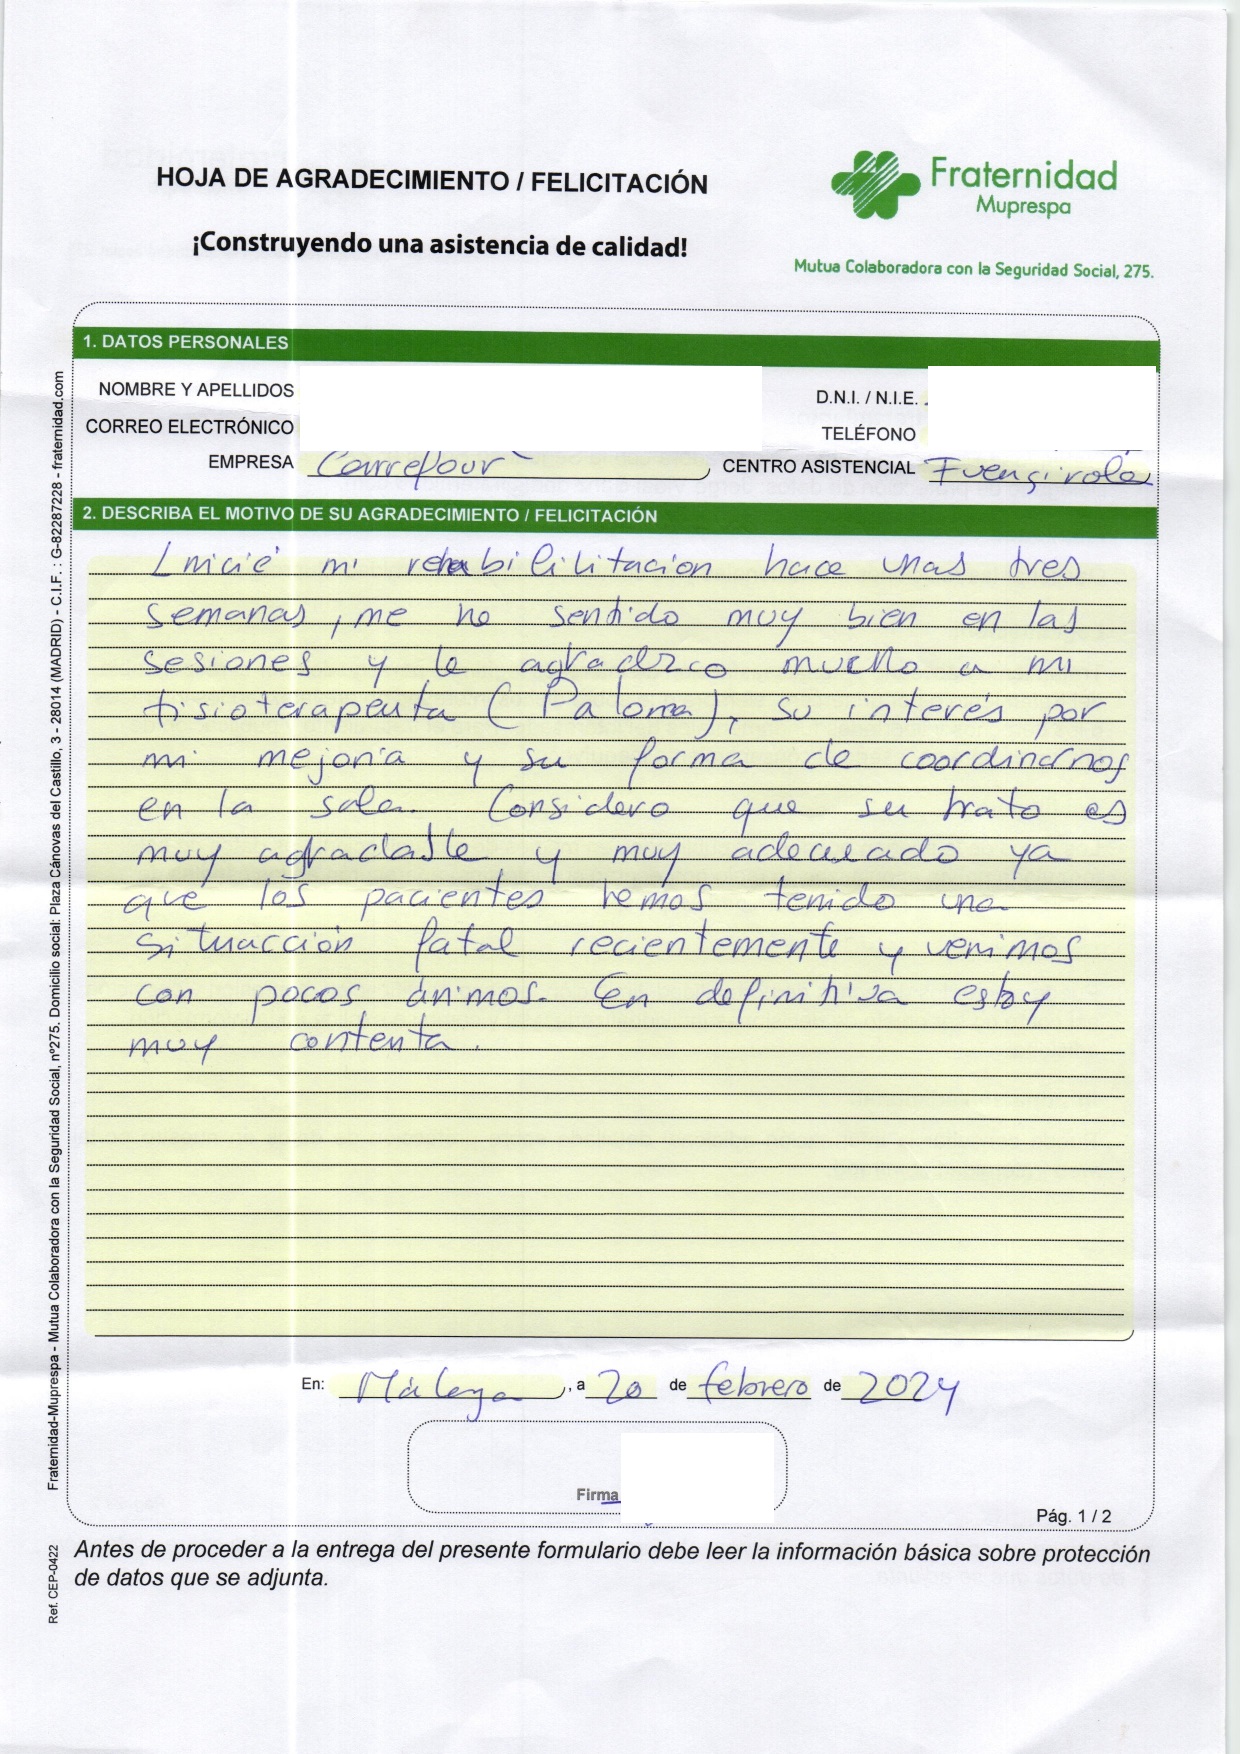 HOJA DE AGRADECIMIENTO / FELICITACIÓN
¡Construyendo una asistencia de calidad!
Fraternidad
Muprespa
Mutua Colaboradora con la Seguridad Social, 275.
1. DATOS PERSONALES
NOMBRE Y APELLIDOS
D.N.I. / N.I.E.
CORREO ELECTRÓNICO
TELÉFONO
EMPRESA Carrefour CENTRO ASISTENCIAL Fuengirola
2. DESCRIBA EL MOTIVO DE SU AGRADECIMIENTO / FELICITACIÓN
Inicié mi rehabilitación hace unas tres
semanas, me he sentido muy bien en las
sesiones y le agradezco mucho a mi
fisioterapeuta (Paloma), su interés por
mi mejoría y su forma de coordinarnos
en la sala. Considero que su trato es
muy agradable y muy adecuado ya
que los pacientes hemos tenido una
situacción fatal recientemente y venimos
con pocos ánimos. En definitiva estoy
muy contenta.
En: Málaga, a 20 de febrero de 2024
Firma
Pág. 1 / 2
Antes de proceder a la entrega del presente formulario debe leer la información básica sobre protección
de datos que se adjunta.
Fraternidad-Muprespa - Mutua Colaboradora con la Seguridad Social, nº275. Domicilio social: Plaza Cánovas del Castillo, 3 - 28014 (MADRID) - C.I.F. : G-82287228 - fraternidad.com
Ref. CEP-0422